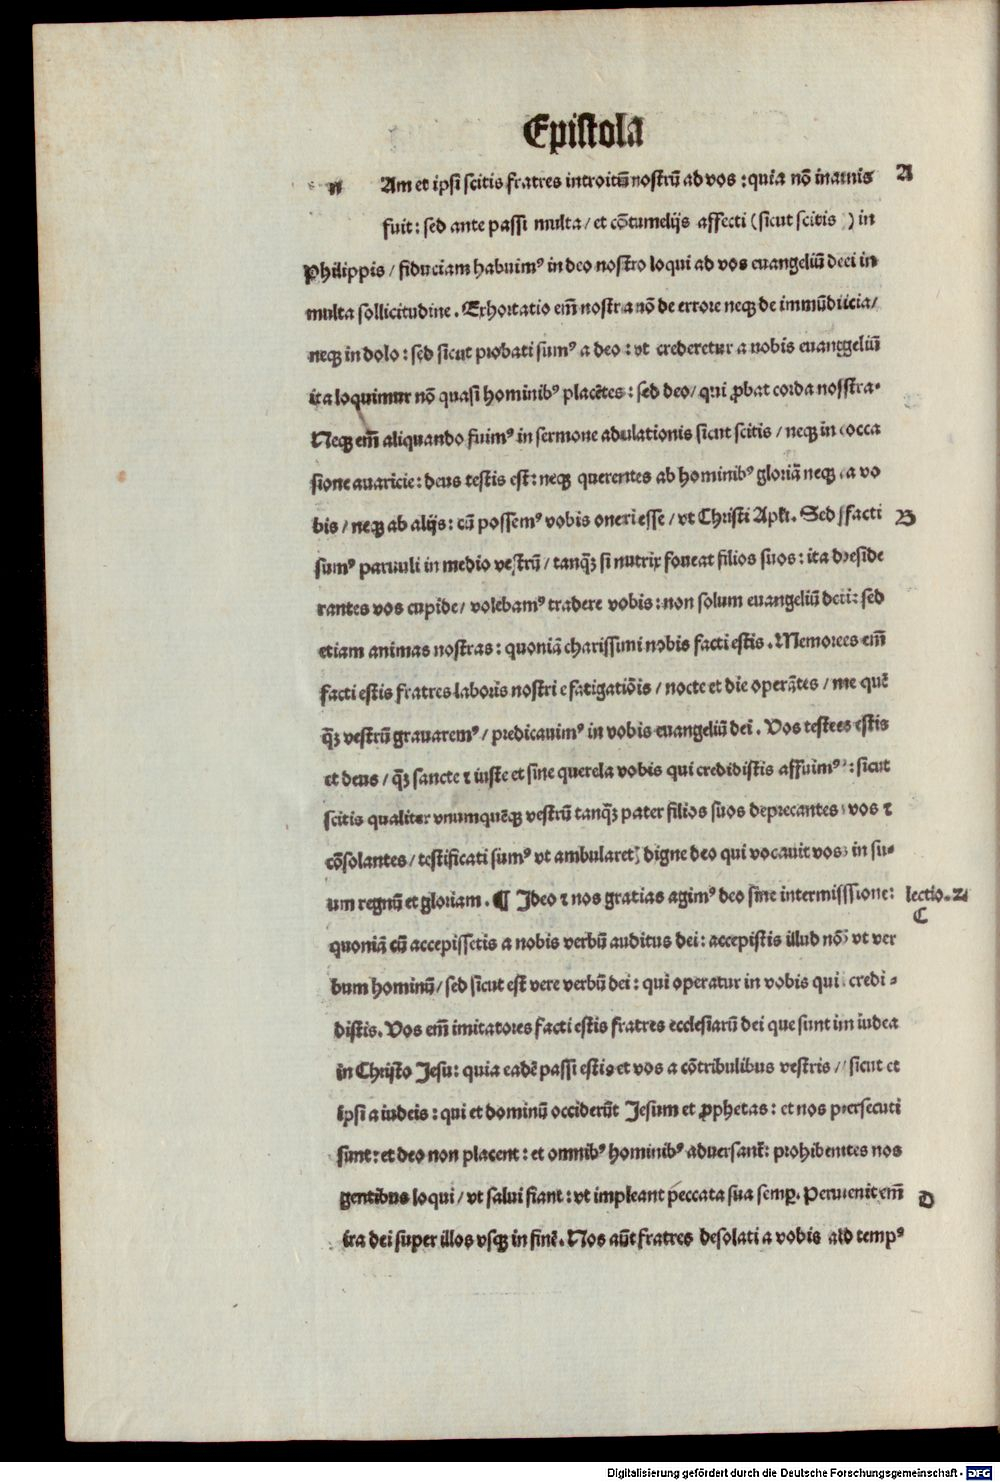 Epistola
n Am et ipsi scitis fratres introitū nostrū ad vos : quia nō inanis A
fuit : sed ante passi multa / et cōtumelijs affecti (sicut scitis ) in
Philippis / fiduciam habuimꝰ in deo nostro loqui ad vos euangeliū dei in
multa sollicitudine . Exhortatio em̄ nostra nō de errore neqꝫ de immūdicia /
neqꝫ in dolo : sed sicut probati sumꝰ a deo : vt crederetur a nobis euangeliū
ita loquimur nō quasi hominibꝰ placētes : sed deo / qui ꝓbat corda nostra.
Neqꝫ em̄ aliquando fuimꝰ in sermone adulationis sicut scitis / neqꝫ in occa
sione auaricie : deus testis est : neqꝫ querentes ab hominibꝰ gloriā neqꝫ a vo
bis / neqꝫ ab alijs : cū possemꝰ vobis oneri esse / vt Christi Apłi . Sed facti B
sumꝰ paruuli in medio vestrū / tanq̄ꝫ si nutrix foueat filios suos : ita deside
rantes vos cupide / volebamꝰ tradere vobis : non solum euangeliū dei : sed
etiam animas nostras : quoniā charissimi nobis facti estis . Memores em̄
facti estis fratres laboris nostri e fatigatiōis / nocte et die operātes / me quē
q̄ꝫ vestrū grauaremꝰ / predicauimꝰ in vobis euangeliū dei . Vos testes estis
et deus / q̄ꝫ sancte ⁊ iuste et sine querela vobis qui credidistis affuimꝰ : sicut
scitis qualiter vnumquēqꝫ vestrū tanq̄ꝫ pater filios suos deprecantes vos ⁊
cōsolantes / testificati sumꝰ vt ambularetꝭ digne deo qui vocauit vos in su-
um regnū et gloriam . ¶ Ideo ⁊ nos gratias agimꝰ deo sine intermissione : lectio . 2
C
quoniā cū accepissetis a nobis verbū auditus dei : accepistis illud nō vt ver
bum hominū / sed sicut est vere verbū dei : qui operatur in vobis qui credi -
distis . Vos em̄ imitatores facti estis fratres ecclesiarū dei que sunt in iudea
in Christo Jesu : quia eadē passi estis et vos a cōtribulibus vestris / sicut et
ipsi a iudeis : qui et dominū occiderūt Jesum et ꝓphetas : et nos persecuti
sunt : et deo non placent : et omnibꝰ hominibꝰ aduersant̄ : prohibentes nos
gentibus loqui / vt salui fiant : vt impleant peccata sua semꝑ . Peruenit em̄ D
ira dei super illos vsqꝫ in finē . Nos aūt fratres desolati a vobis ad tempꝰ
Digitalisierung gefördert durch die Deutsche Forschungsgemeinschaft - DFG